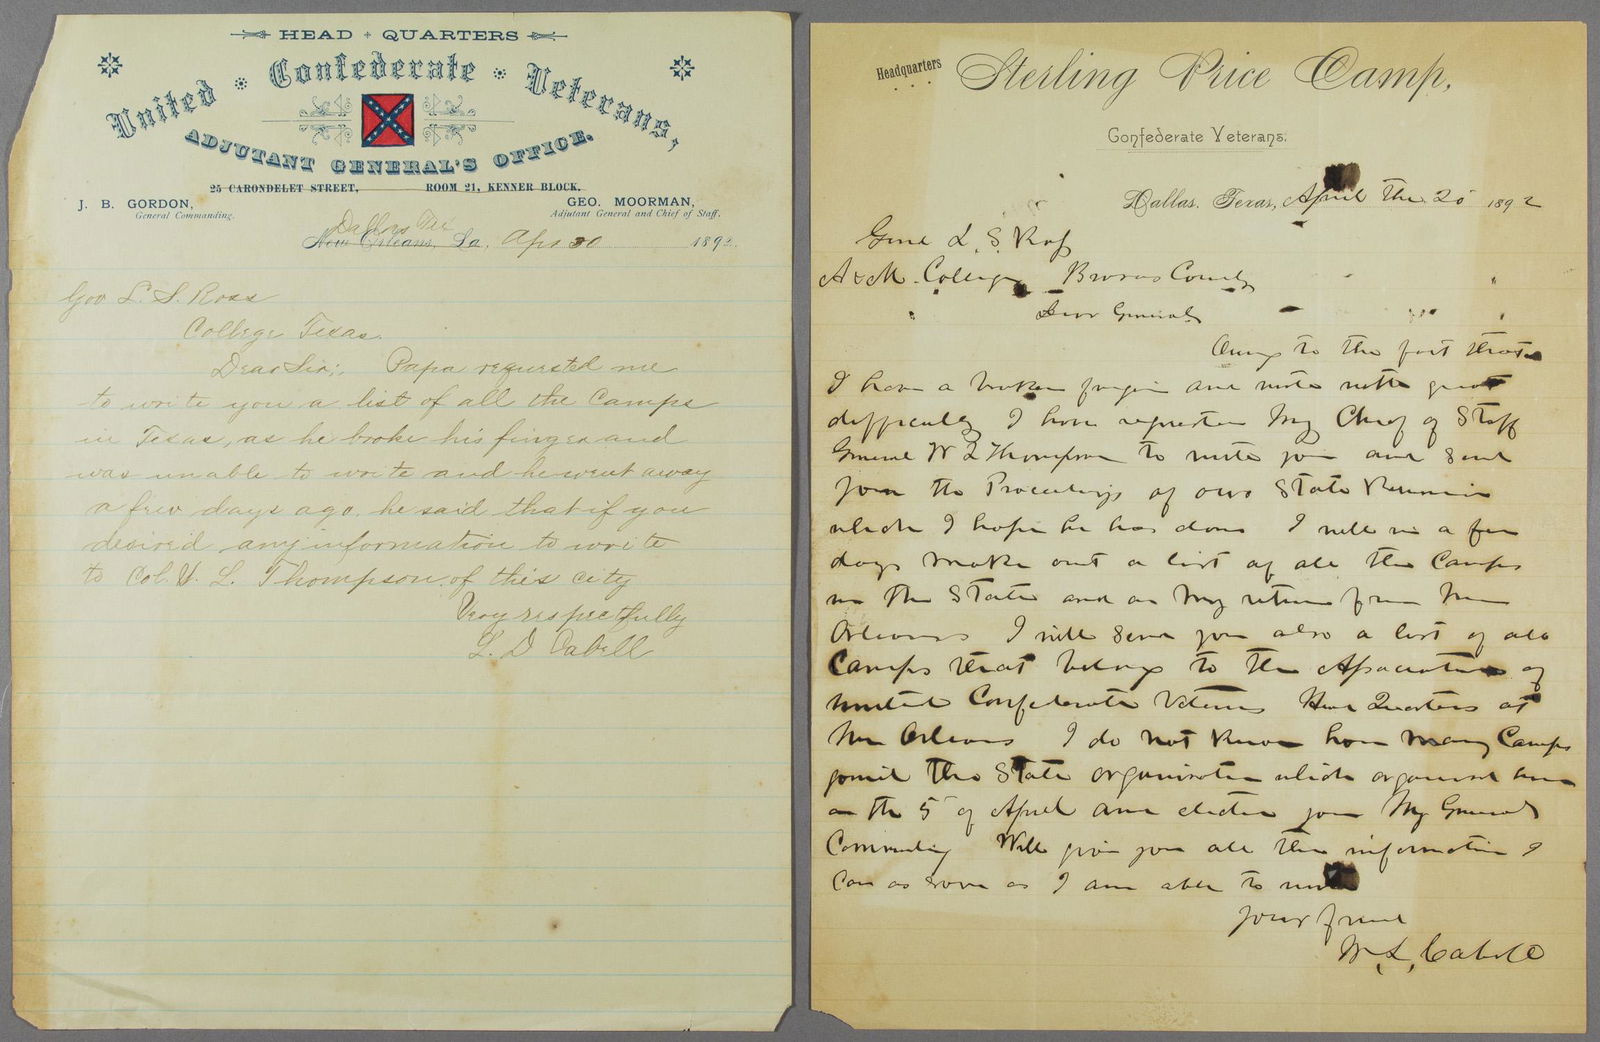 HEAD QUARTERS
United Confederate Veterans,
ADJUTANT GENERAL'S OFFICE.
25 CARONDELET STREET, ROOM 21, KENNER BLOCK.
J. B. GORDON,
General Commanding.
GEO. MOORMAN,
Adjutant General and Chief of Staff.
Dallas Tex
New Orleans, La. Apr 30 1892.
Gov L. S. Ross
College Texas.
Dear Sir; Papa requested me
to write you a list of all the Camps
in Texas, as he broke his finger and
was unable to write and he went away
a few days ago. he said that if you
desired any information to write
to Col. L. Thompson of this city
Very respectfully
L. D Cabell
Headquarters
Sterling Price Camp,
Confederate Veterans.
Dallas, Texas, April the 20 1892
Genl L. S. Ross
A & M. College Brazos County
Dear General
Owing to the fact that
I have a broken finger and write with great
difficulty I have requested My Chief of Staff
General W L Thompson to write you and send
you the Proceedings of our State Reunion
which I hope he has done I will in a few
days make out a list of all the Camps
in the State and on My return from New
Orleans I will send you also a list of all
Camps that belong to the Association of
United Confederate Veterans Head Quarters at
New Orleans I do not know how many Camps
joined the State organization which organized here
on the 5 of April and elected you My General
Commanding Will give you all the information I
can as soon as I am able to write
your friend
W. L. Cabell